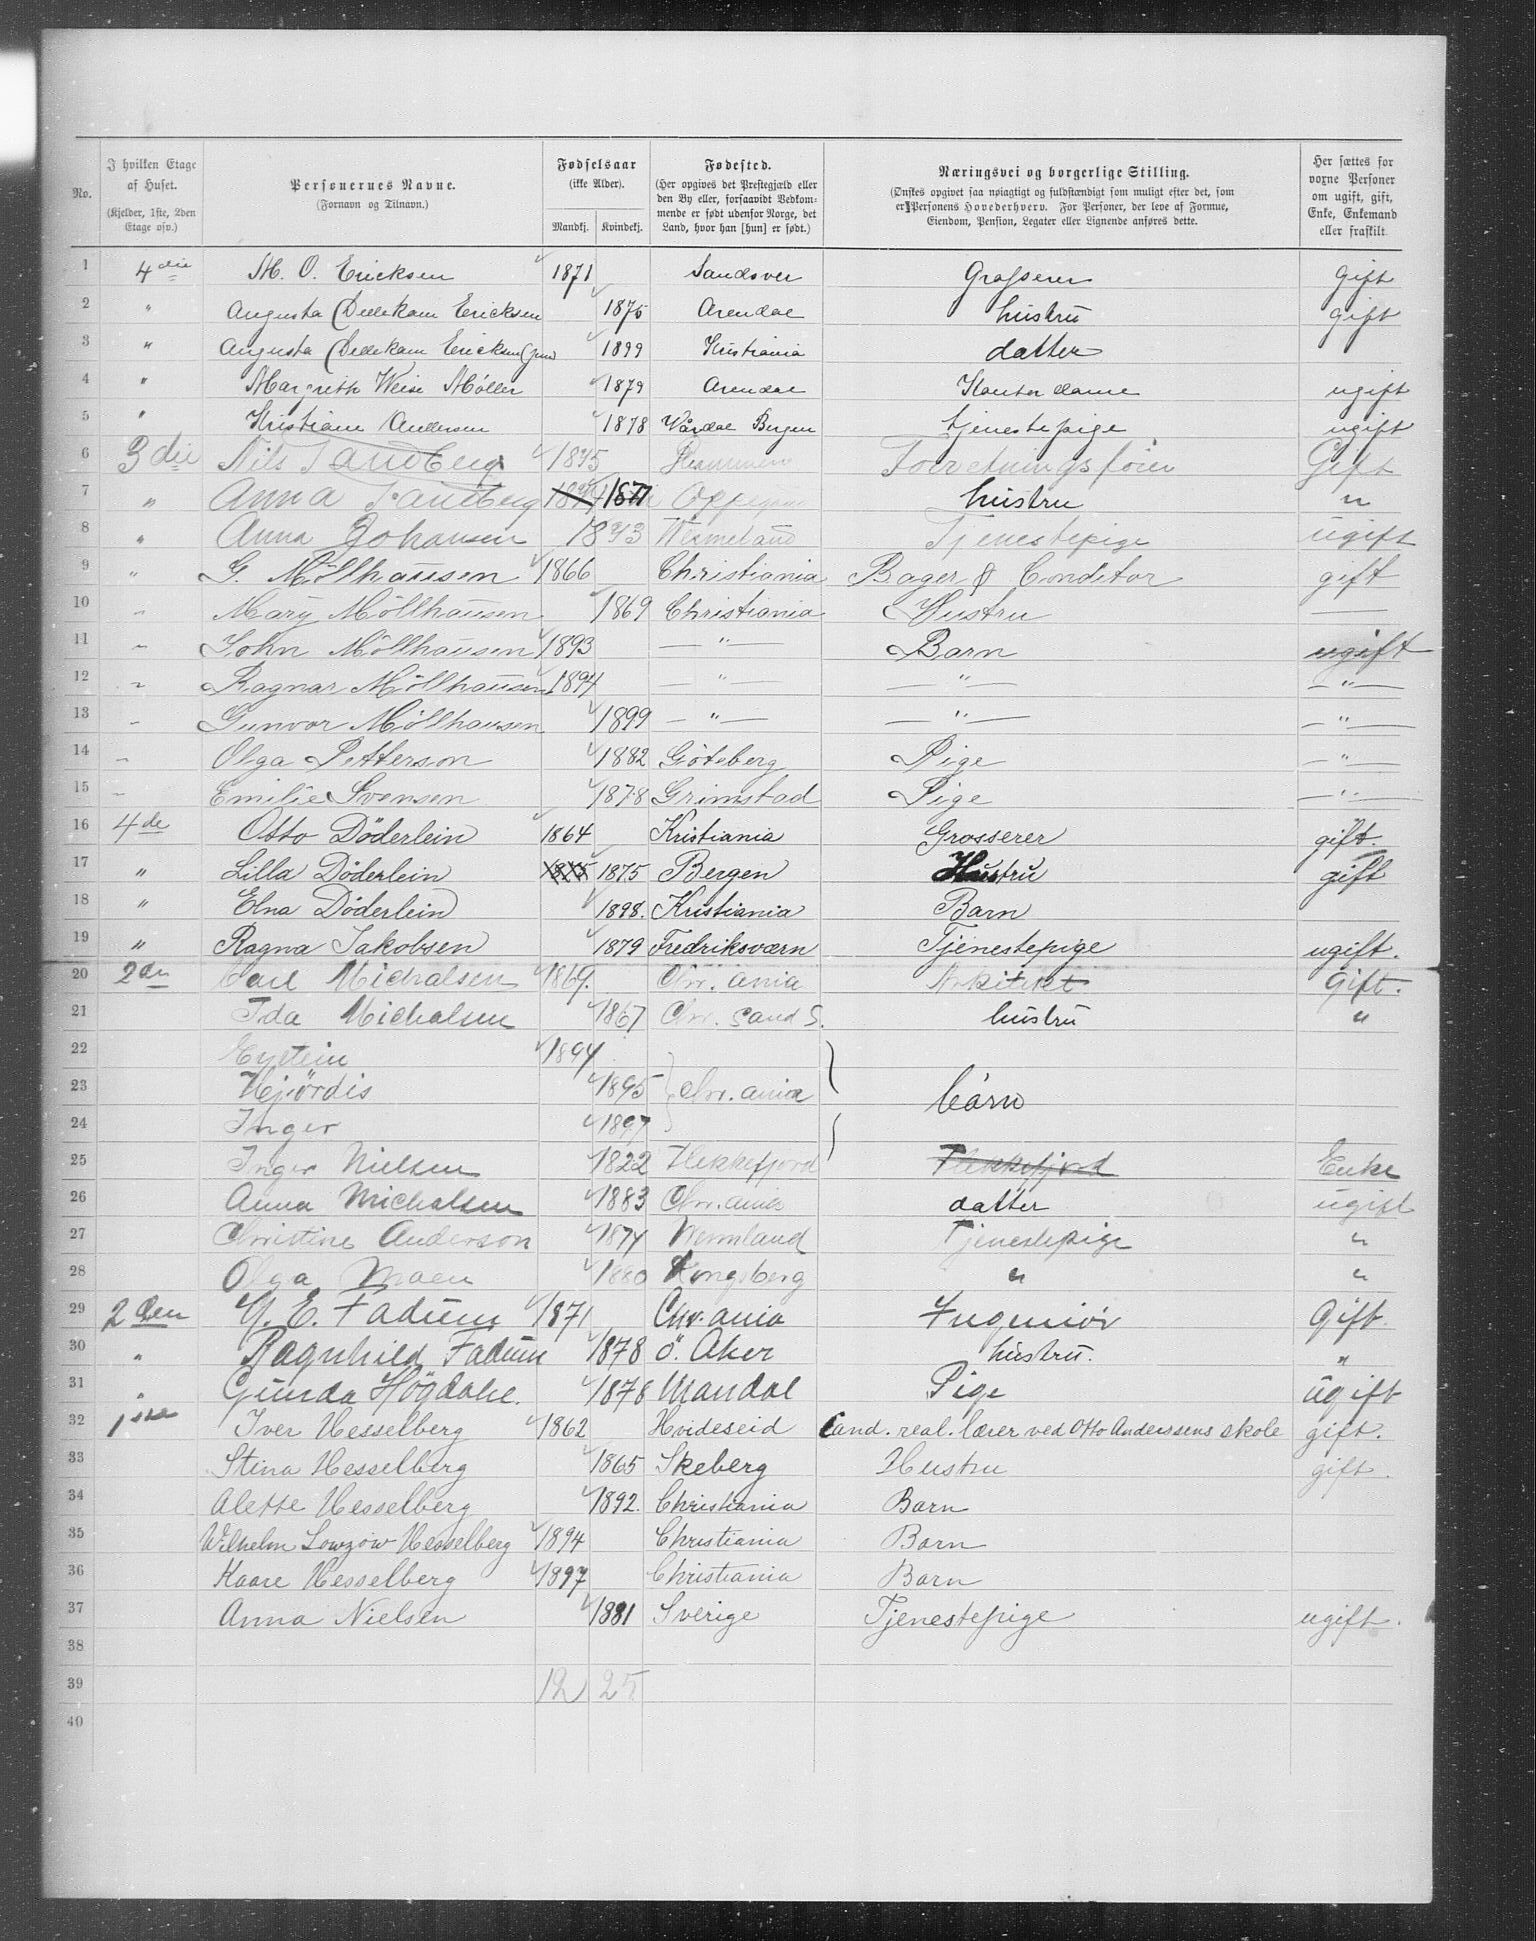 No. | I hvilken Etage af Huset. (Kjelder, 1ste, 2den Etage osv.) | Personernes Navne. (Fornavn og Tilnavn.) | Fødselsaar (ikke Alder). Mandkj. Kvindekj. | Fødested. (Her opgives det Prestegjæld eller den By eller, forsaavidt Vedkommende er født udenfor Norge, det Land, hvor han [hun] er født.) | Næringsvei og borgerlige Stilling. (Ønskes opgivet saa nøiagtigt og fuldstændigt som muligt efter det, som er Personens Hovederhverv. For Personer, der leve af Formue, Eiendom, Pension, Legater eller Lignende anføres dette.) | Her sættes for voxne Personer om ugift, gift, Enke, Enkemand eller fraskilt.
1 4die M. O. Ericksen 1871 Sandsver Grosserer gift
2 " Augusta Dedekam Ericksen 1875 Arendal hustru gift
3 " Augusta Dedekam Ericksen (jun) 1899 Kristiania datter
4 " Margrethe Weise Møller 1879 Arendal Kontordame ugift
5 " Kristiane Andersen 1878 Bergen tjenestepige ugift
6 3die Nils Sandberg 1875 Forretningsfører Gift
7 " Anna Sandberg 1877 hustru "
8 " Anna Johansen 1873 Wermeland Tjenestepige ugift
9 " G. Möllhausen 1866 Christiania Bager & Conditor gift
10 " Mary Möllhausen 1869 Christiania Hustru
11 " John Möllhausen 1893 —"— Barn ugift
12 " Ragnar Möllhausen 1894 —"— —"— —"—
13 " Gunvor Möllhausen 1899 —"— —"— —"—
14 " Olga Petterson 1882 Göteberg Pige —"—
15 " Emilie Svensen 1878 Grimstad Pige —"—
16 4de Otto Döderlein 1864 Kristiania Grosserer gift.
17 " Lilla Döderlein 1875 Bergen Hustru gift
18 " Elna Döderlein 1898. Kristiania Barn
19 " Ragna Jakobsen 1879 Fredriksværn Tjenestepige ugift.
20 2den Carl Michalsen 1869. Chr. ania Arkitekt Gift.
21 Ida Michalsen 1867 Chr. sand S. hustru "
22 Eystein 1894
23 Hjördis 1895 Chr. ania börn
24 Inger 1897
25 Inger Nielsen 1822 Flekkefjord Flekkefjord Enke
26 Anna Michalsen 1883 Chr. ania datter ugift
27 Christine Anderson 1874 Wermland Tjenestepige "
28 Olga Moen 1880 Kongsberg " "
29 2den E. Fadum 1871 Chr. ania Ingeniör Gift.
30 " Ragnhild Fadum 1878 ö. Aker hustru. "
31 " Gunda Högdahl. 1878 Mandal Pige ugift
32 1ste Iver Hesselberg 1862 Hvideseid Cand. real. lærer ved Otto Anderssens skole gift.
33 Stina Hesselberg 1865 Skeberg Hustru gift.
34 Alette Hesselberg 1892. Christiania Barn
35 Wilhelm Lowzow Hesselberg 1894 Christiania Barn
36 Kaare Hesselberg 1897 Christiania Barn
37 Anna Nielsen 1881 Sverige Tjenestepige ugift.
38
39 12 25
40